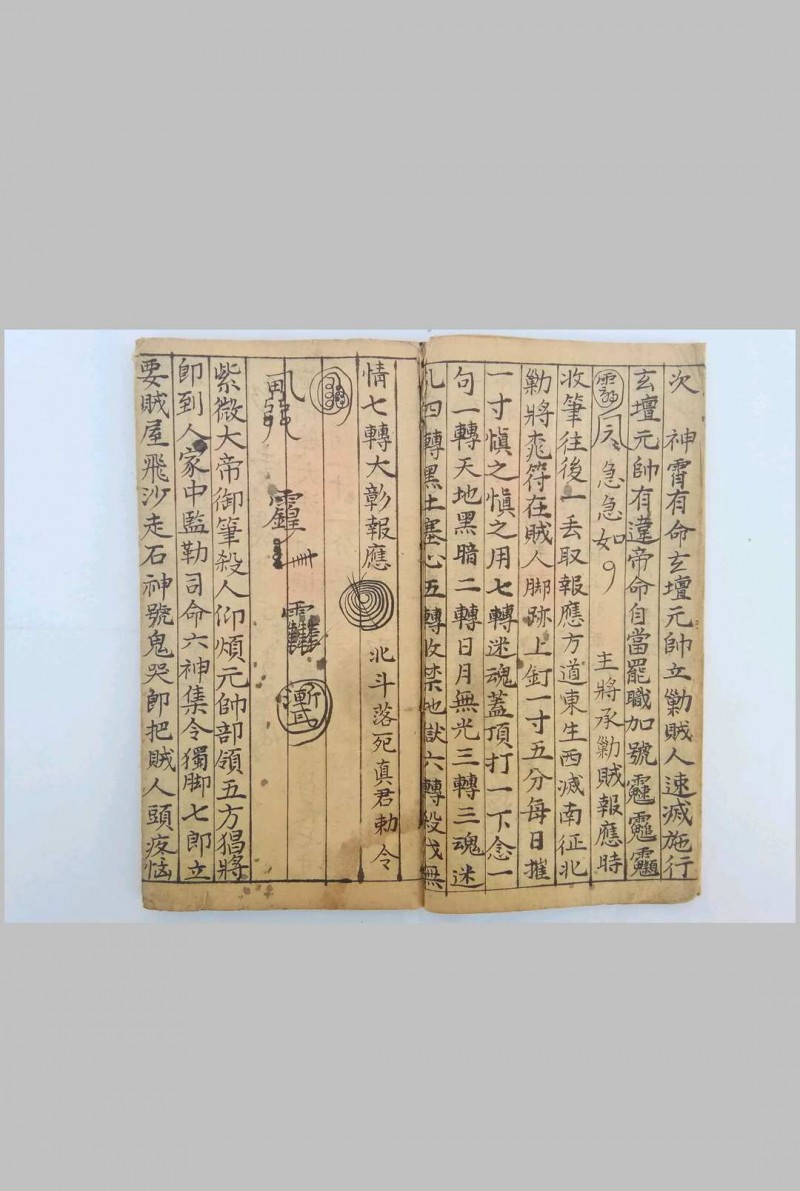 次　神霄有命玄壇元帥立勦賊人速滅施行
玄壇元帥有違帝命自當罷職加號
急急如　主將承勦賊報應時
收筆往後一丢取報應方道東生西滅南征北
勦將符在賊人脚跡上釘一寸五分每日摧
一寸慎之慎之用七轉迷魂蓋頂打一下念一
句一轉天地黑暗二轉日月無光三轉三魂迷
乱四轉黑土塞心五轉收禁地獄六轉殺伐無
情七轉大彰報應　北斗落死真君勅令
紫微大帝御筆殺人仰煩元帥部領五方猖將
卽到人家中監勒司命六神集令獨脚七郎立
要賊屋飛沙走石神號鬼哭卽把賊人頭疼惱